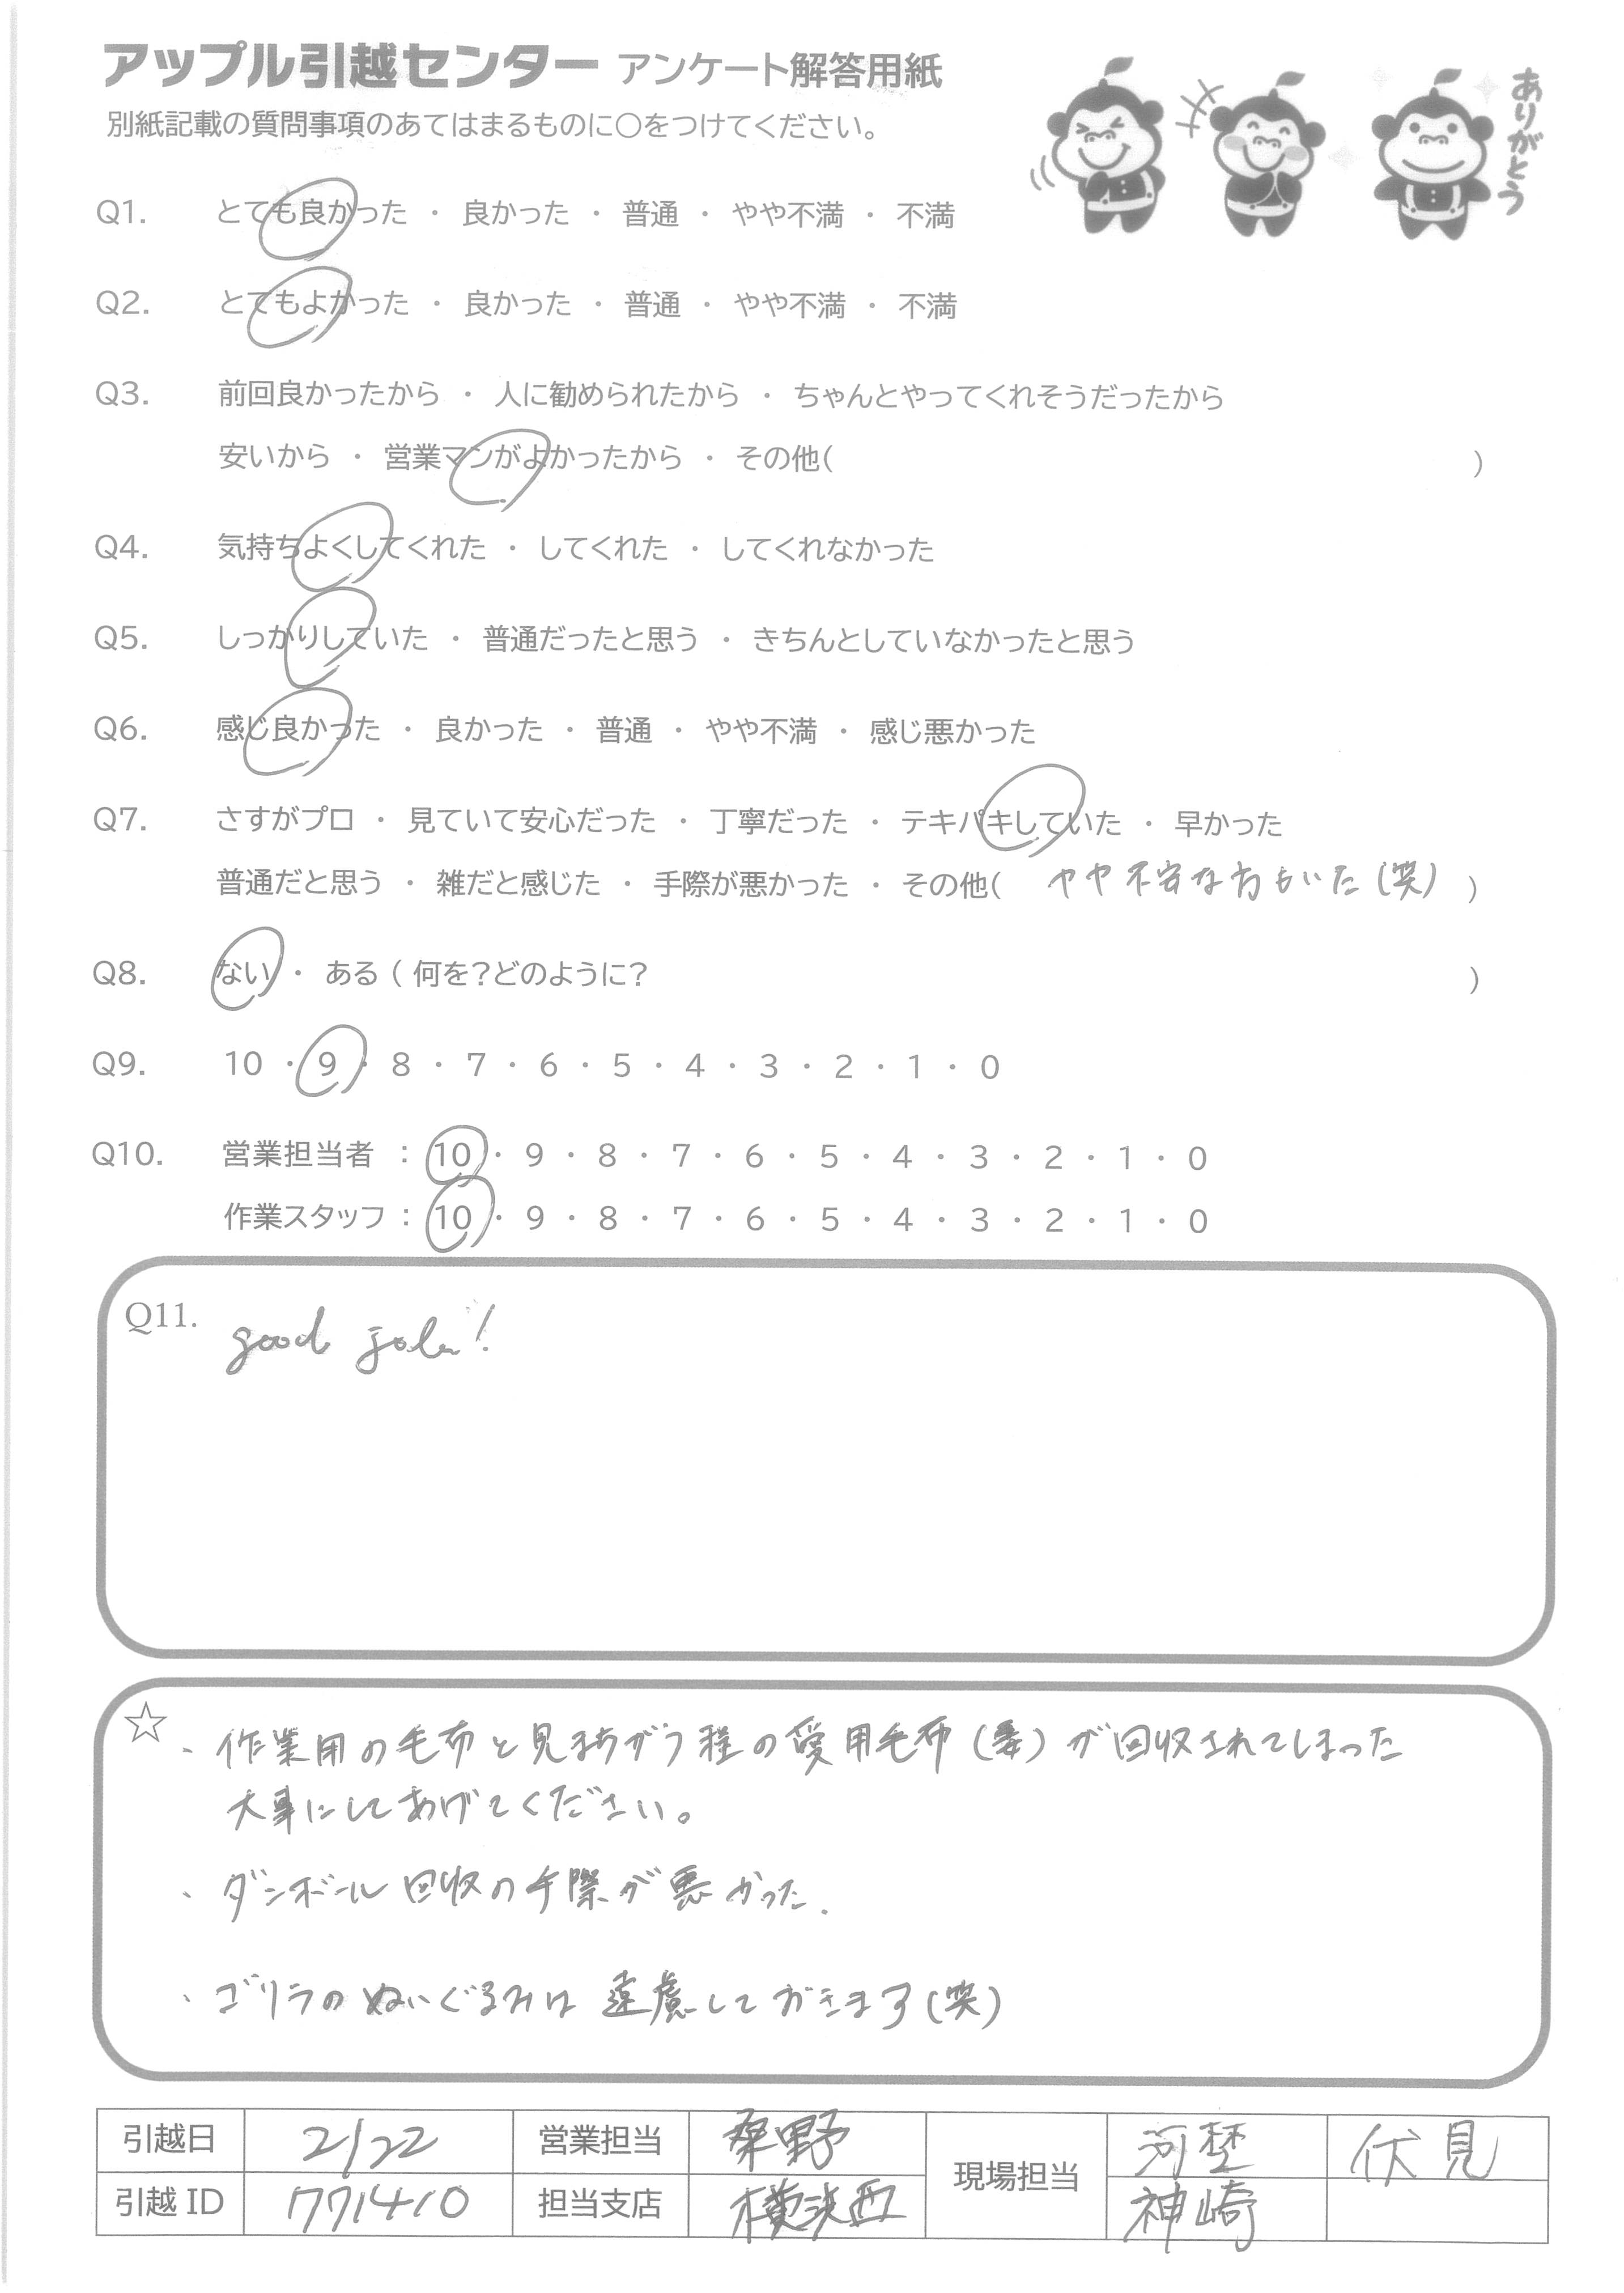 アップル引越センター アンケート解答用紙
ありがとう
別紙記載の質問事項のあてはまるものに○をつけてください。
Q1. とても良かった ・ 良かった ・ 普通 ・ やや不満 ・ 不満
Q2. とてもよかった ・ 良かった ・ 普通 ・ やや不満 ・ 不満
Q3. 前回良かったから ・ 人に勧められたから ・ ちゃんとやってくれそうだったから
安いから ・ 営業マンがよかったから ・ その他( )
Q4. 気持ちよくしてくれた ・ してくれた ・ してくれなかった
Q5. しっかりしていた ・ 普通だったと思う ・ きちんとしていなかったと思う
Q6. 感じ良かった ・ 良かった ・ 普通 ・ やや不満 ・ 感じ悪かった
Q7. さすがプロ ・ 見ていて安心だった ・ 丁寧だった ・ テキパキしていた ・ 早かった
普通だと思う ・ 雑だと感じた ・ 手際が悪かった ・ その他( ヤヤ不安な方もいた(笑) )
Q8. ない ・ ある ( 何を?どのように? )
Q9. 10 ・ 9 ・ 8 ・ 7 ・ 6 ・ 5 ・ 4 ・ 3 ・ 2 ・ 1 ・ 0
Q10. 営業担当者 : 10 ・ 9 ・ 8 ・ 7 ・ 6 ・ 5 ・ 4 ・ 3 ・ 2 ・ 1 ・ 0
作業スタッフ : 10 ・ 9 ・ 8 ・ 7 ・ 6 ・ 5 ・ 4 ・ 3 ・ 2 ・ 1 ・ 0
Q11. good job!
☆ 、作業用の毛布と見まちがう程の愛用毛布( )が回収されてしまった
大事にしてあげてください。
、ダンボール回収の手際が悪かった.
、ゴリラのぬいぐるみは遠慮しておきます(笑)
引越日 2/22 営業担当 桑野 現場担当 河埜 伏見
引越 ID 771410 担当支店 横浜西 神崎